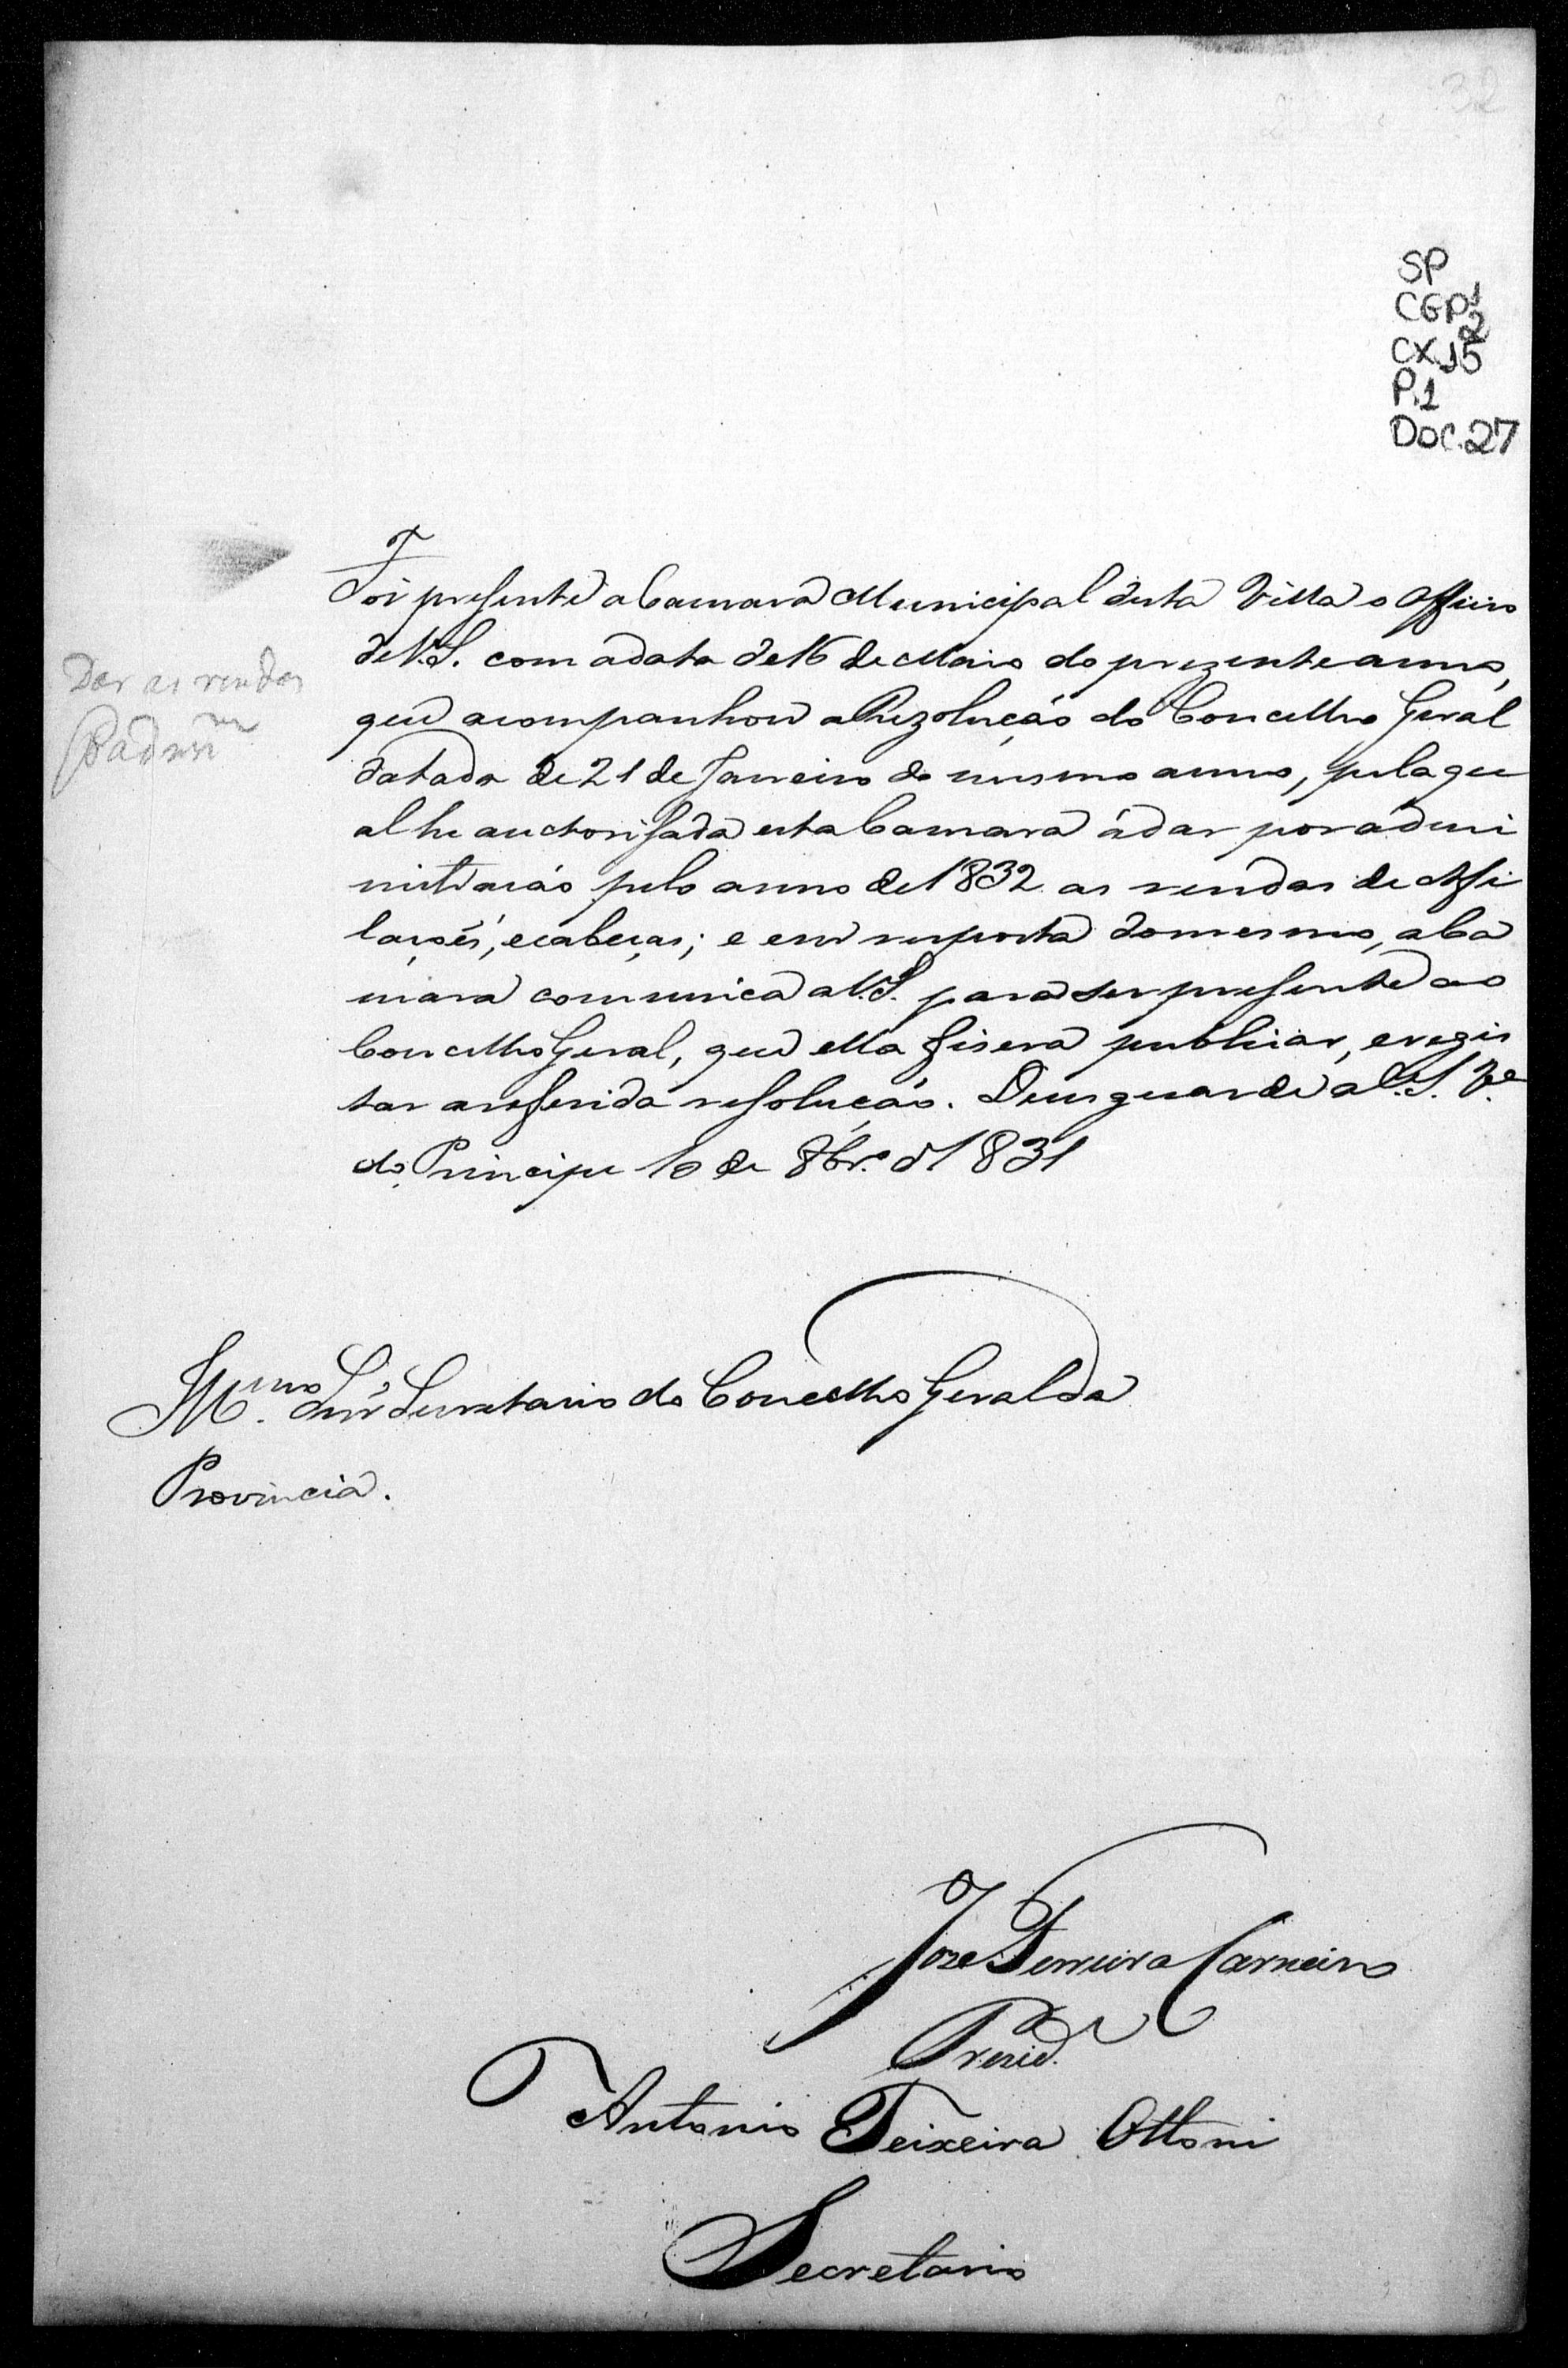 32
SP
CGP 1
2
CX.15
P.1
DOC.27
Foi presente a Camara Municipal desta Villa o Officio
de V.S. com a data de 16 de Maio do prezente anno,
que acompanhou a Rezolução do Concelho Geral
datada de 21 de Janeiro do mesmo anno, pela qu
al he auctorisada esta Camara á dar por admi
nistração pelo anno de 1832 as rendas de Afi
laçoẽs, e cabeças; e em resposta do mesmo, a Ca
mara comunica a V.S. para ser presente ao
Concelho Geral, que ella fisera publicar, e regis
tar a referida resolução. Deus guarde a V.S. Vª
do Principe 10 de 8br.º d 1831
Dar as rendas
Por adm
Illmo. Snr Secretario do Concelho Geral da
Provincia.
Joze Ferreira Carneiro
Prezid.e
Antonio Teixeira Ottoni
Secretario